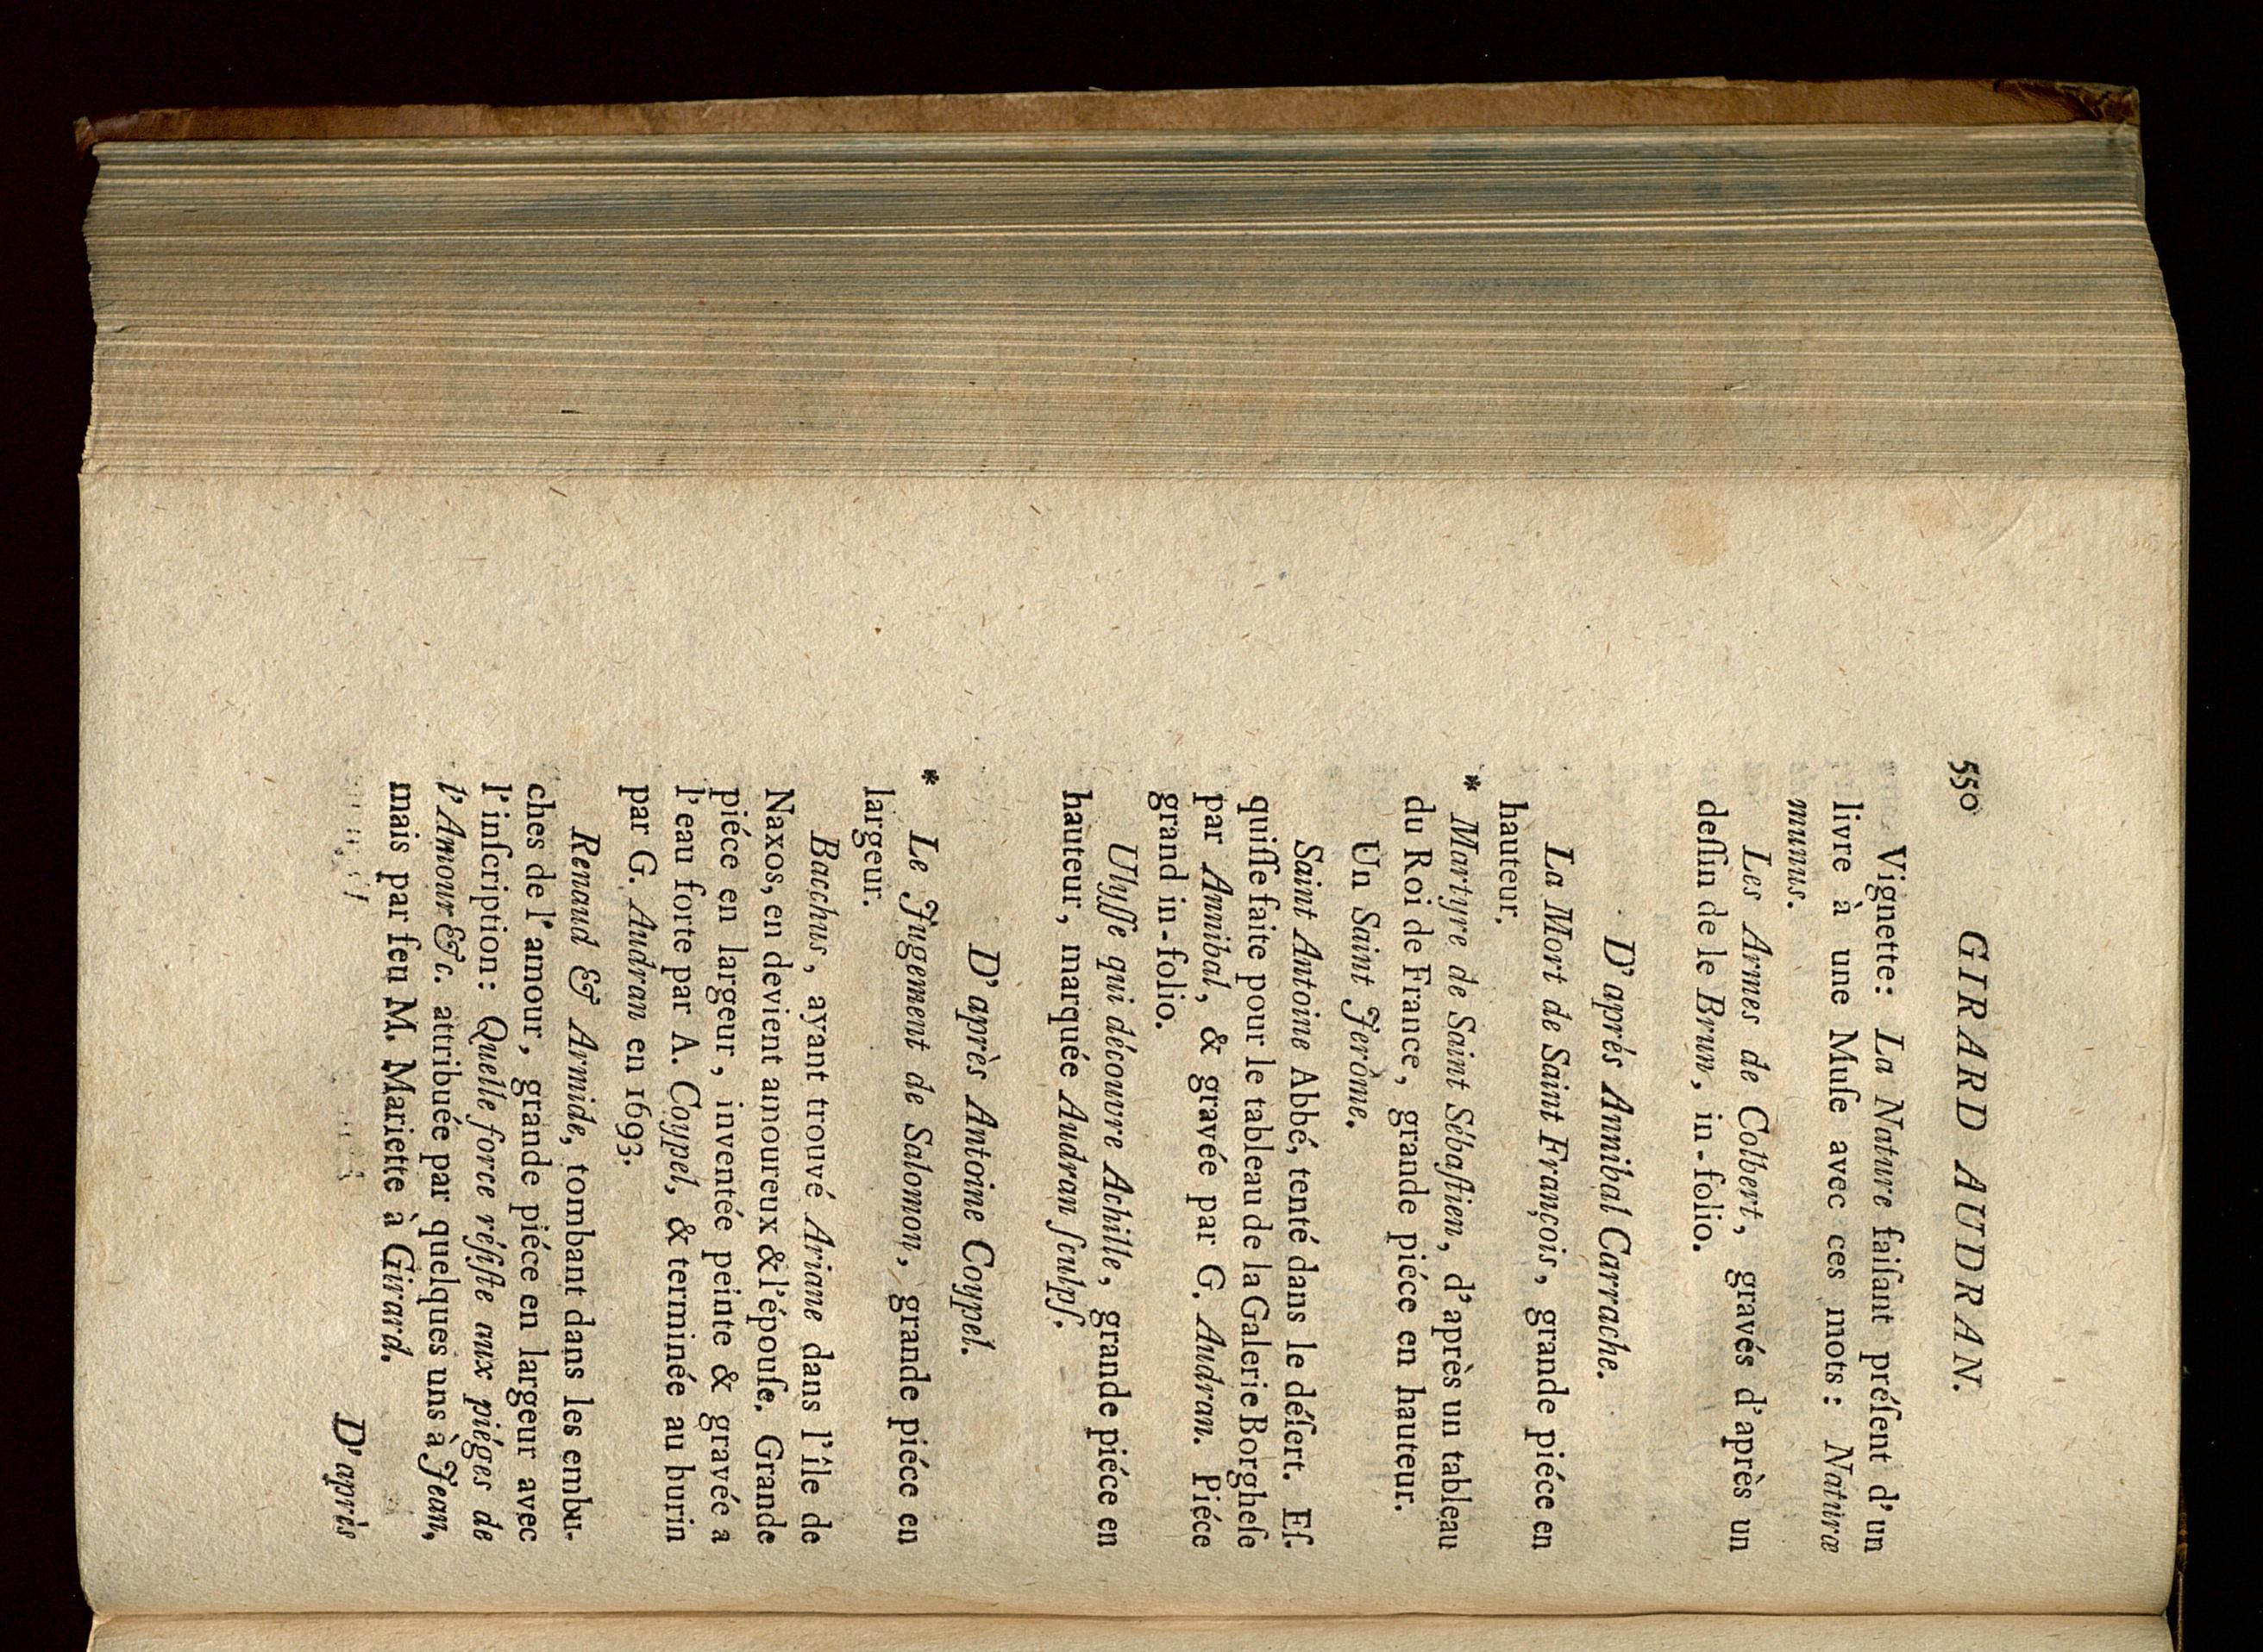 550 GIRARD AUDRAN.
Vignette: La Nature faiſant préſent d'un
livre à une Muſe avec ces mots: Naturæ
munus.
Les Armes de Colbert, gravés d'après un
deſſin de le Brun, in-folio.
D'aprés Annibal Carrache.
La Mort de Saint François, grande piéce en
hauteur.
* Martyre de Saint Sébaſtien, d'après un tableau
du Roi de France, grande piéce en hauteur.
Un Saint Jerôme.
Saint Antoine Abbé, tenté dans le déſert. Eſ-
quiſſe faite pour le tableau de la Galerie Borgheſe
par Annibal, & gravée par G. Audran. Piéce
grand in-folio.
Ulyſſe qui découvre Achille, grande piéce en
hauteur, marquée Audran ſculpſ.
D'après Antoine Coypel.
* Le Jugement de Salomon, grande piéce en
largeur.
Bacchus, ayant trouvé Ariane dans l'île de
Naxos, en devient amoureux & l'épouſe. Grande
piéce en largeur, inventée peinte & gravée a
l'eau forte par A. Coypel, & terminée au burin
par G. Audran en 1693.
Renaud & Armide, tombant dans les embu-
ches de l'amour, grande piéce en largeur avec
l'inſcription: Quelle force réſiſte aux piéges de
l'Amour &c. attribuée par quelques uns à Jean,
mais par feu M. Mariette à Girard.
D'après